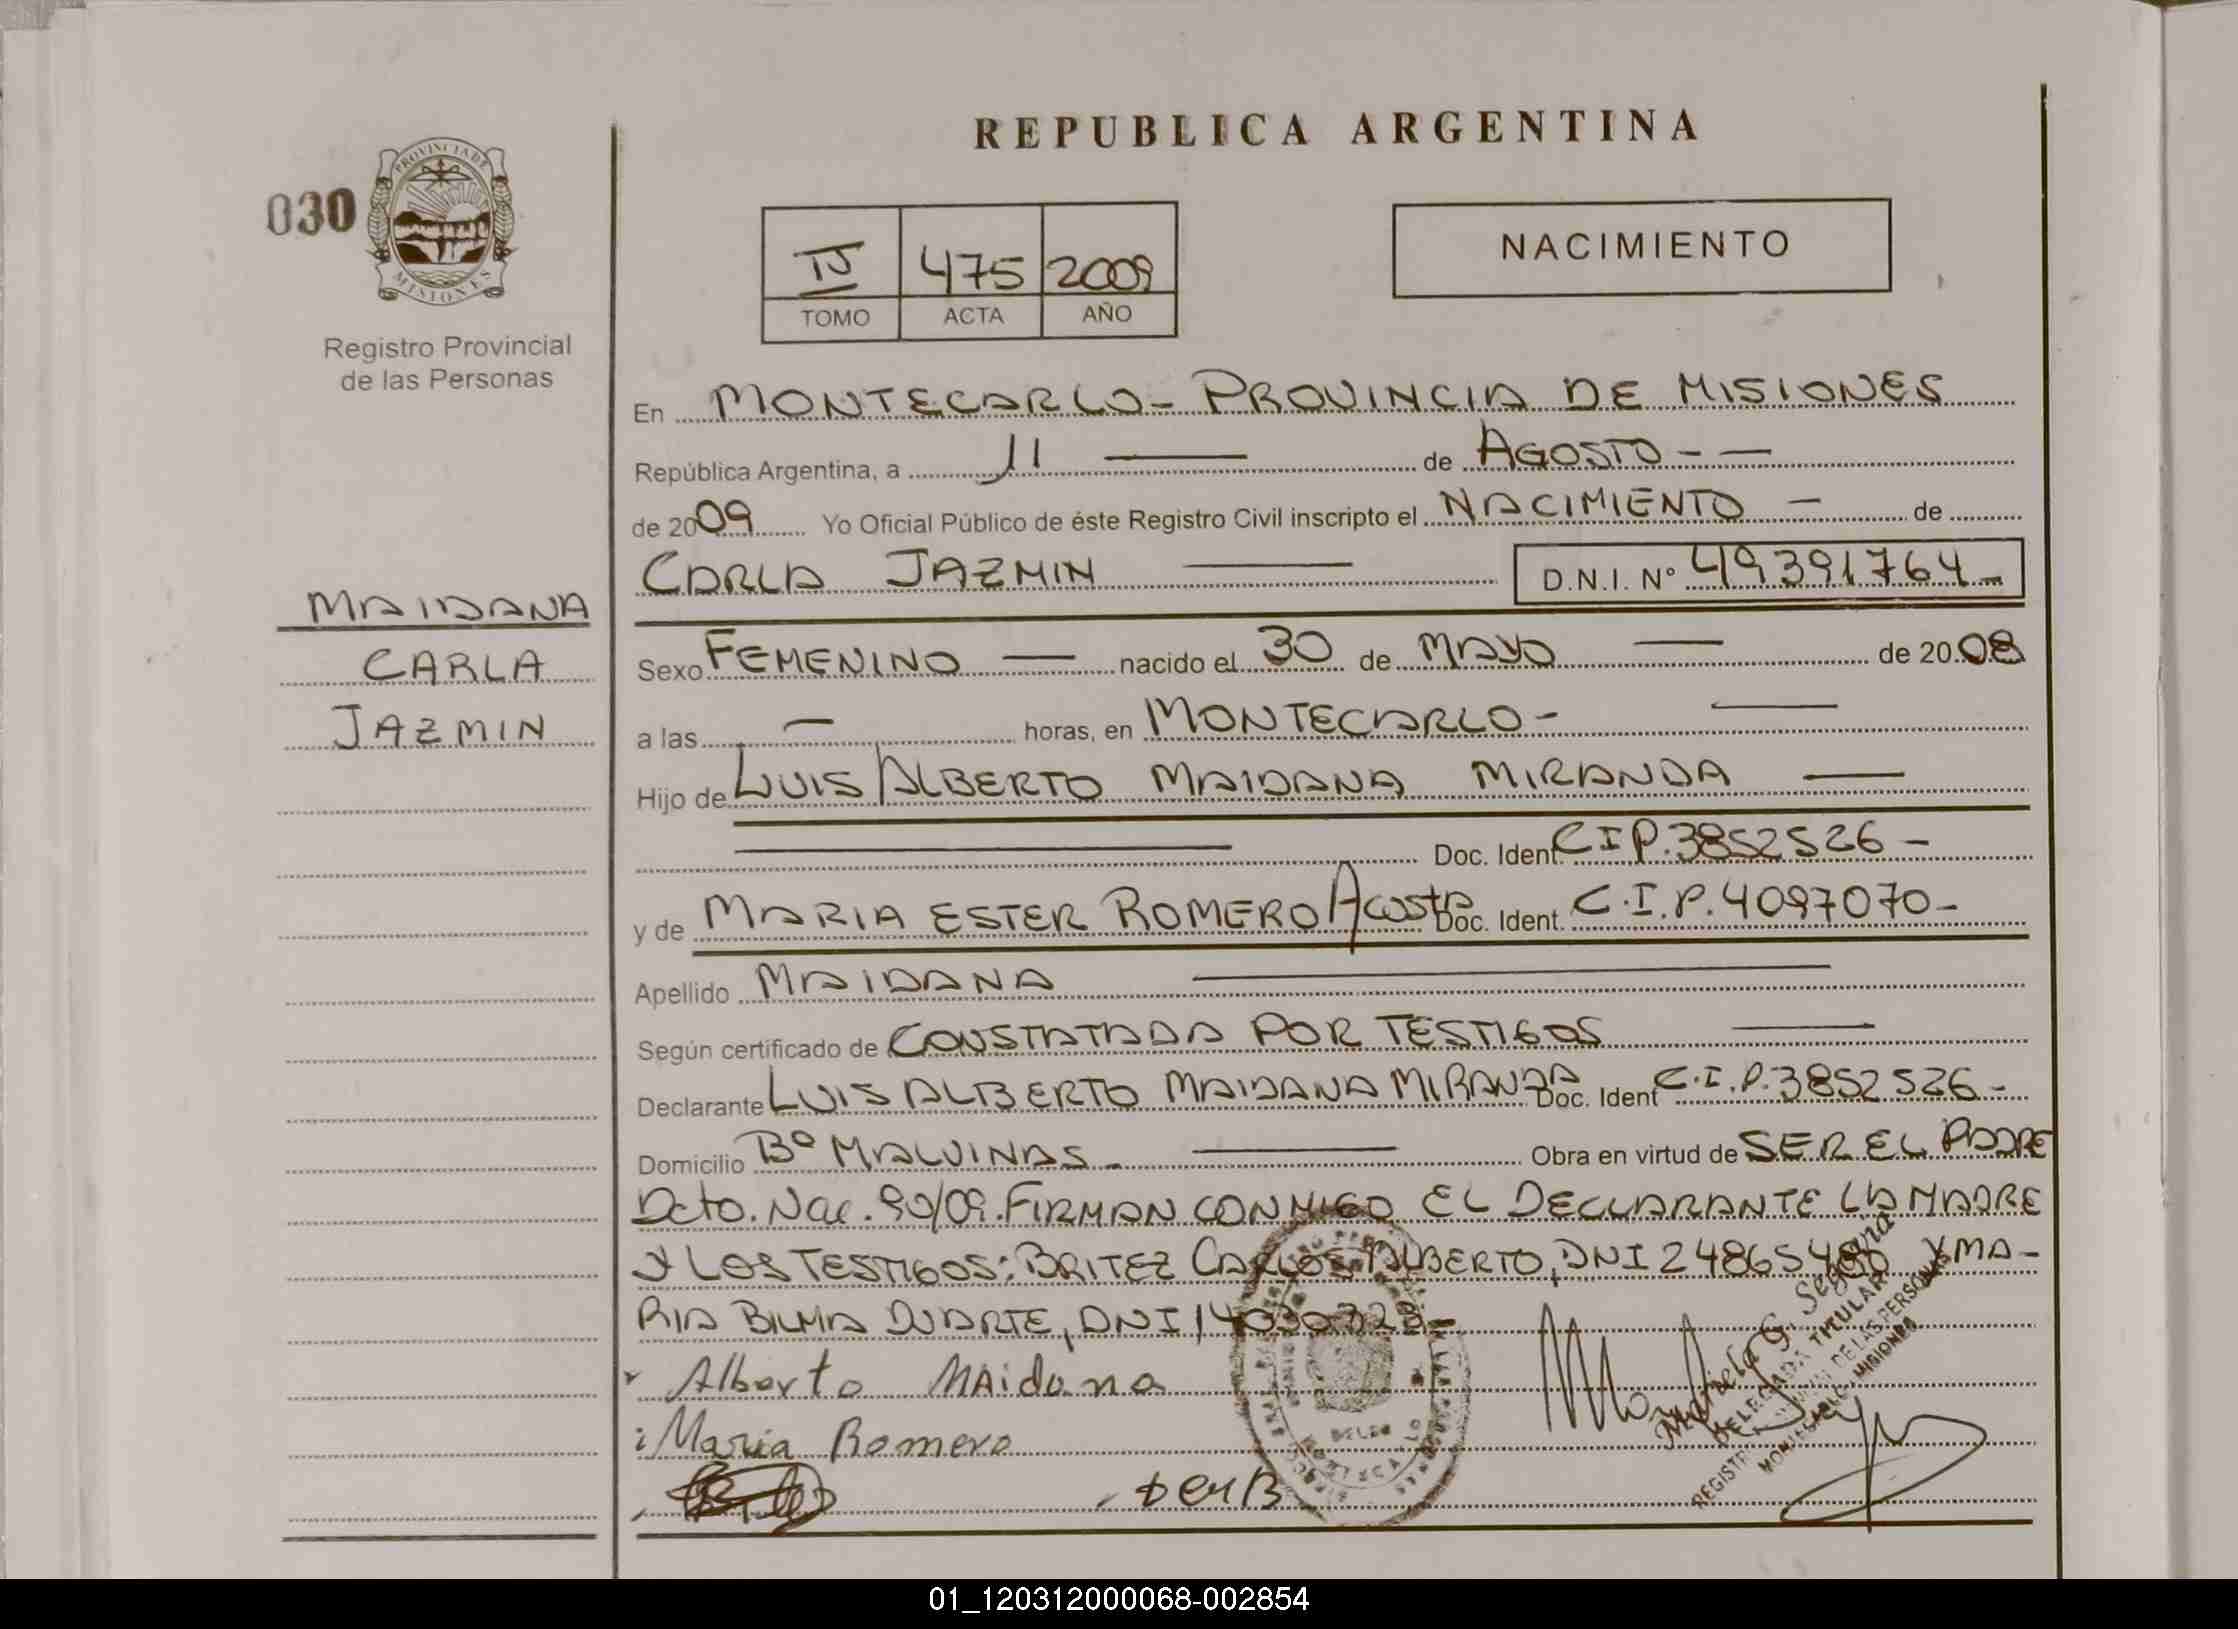 REPUBLICA ARGENTINA
030
PROVINCIA DE
MISIONES
Registro Provincial
de las Personas
475 2009
TOMO ACTA AÑO
NACIMIENTO
En MONTECARLO - PROVINCIA DE MISIONES
República Argentina, a 11 de AGOSTO - -
de 2009 Yo Oficial Público de éste Registro Civil inscripto el NACIMIENTO - de
CARLA JAZMIN D.N.I. Nº 49391764-
MAIDANA
CARLA
JAZMIN
Sexo FEMENINO nacido el 30 de MAYO de 2008
a las - horas, en MONTECARLO -
Hijo de LUIS ALBERTO MAIDANA MIRANDA
Doc. Ident. C I P. 3852526 -
y de MARIA ESTER ROMERO ACOSTA Doc. Ident. C.I.P. 4097070 -
Apellido MAIDANA
Según certificado de CONSTATADA POR TESTIGOS
Declarante LUIS ALBERTO MAIDANA MIRANDA Doc. Ident C.I.P. 3852526 -
Domicilio Bº MALVINAS - Obra en virtud de SER EL PADRE
Dcto. Nac. 90/09. FIRMAN CONMIGO EL DECLARANTE LA MADRE
Y LOS TESTIGOS: BRITEZ CARLOS ALBERTO, DNI Y MA-
RIA BILMA DUARTE, DNI
Alberto Maidana
Maria Romero
Mariela G. Segovia
DELEGADA TITULAR
DE LAS PERSONAS
MONTECARLO - MISIONES
01_120312000068-002854